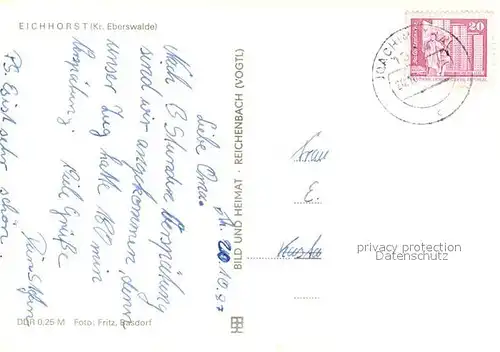 EICHHORST (Kr. Eberswalde)
Liebe Oma.
Nach 3 Stunden Verspätung
sind wir angekommen, denn
unser Zug hatte 180 min
Verspätung. Viel Grüße
PS. Es ist sehr schön.
BILD UND HEIMAT · REICHENBACH (VOGTL)
DDR 0,25 M Foto: Fritz, Basdorf
JOACHIM
20
Frau
E.
privacy protection
Datenschutz